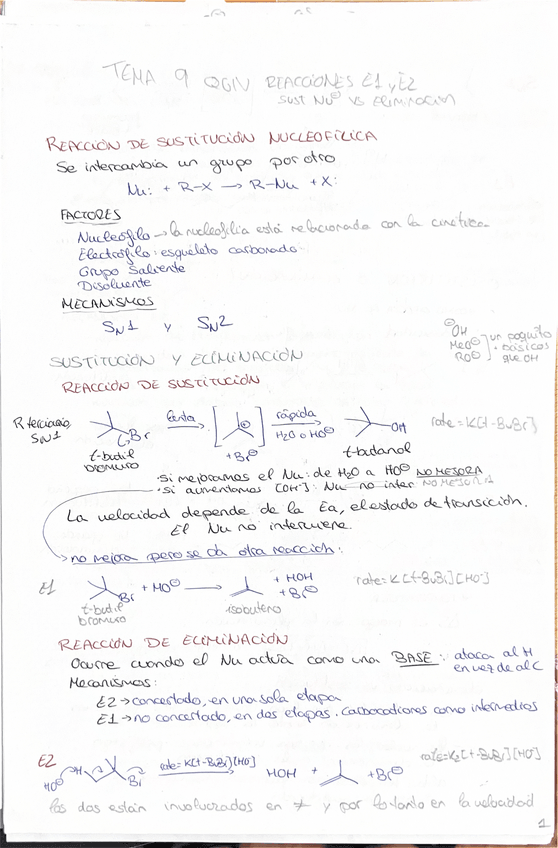 TEMA 9 QGIV REACCIONES E1 y E2
SUST NU⊖ VS ELIMINACIÓN
REACCIÓN DE SUSTITUCIÓN NUCLEOFÍLICA
Se intercambia un grupo por otro
Nu: + R-X → R-Nu + X:
FACTORES
Nucleófilo → la nucleofilia está relacionada con la cinética.
Electrófilo: esqueleto carbonado.
Grupo Saliente
Disolvente
MECANISMOS
SN1 y SN2
⊖OH
MeO⊖
RO⊖
un poquito
+ básicos
que OH
SUSTITUCIÓN Y ELIMINACIÓN
REACCIÓN DE SUSTITUCIÓN
R terciario
SN1
Br
lenta
⊕
+ Br⊖
rápida
H₂O o HO⊖
OH
rate = K[t-BuBr]
t-butil
bromuro
t-butanol
· si mejoramos el Nu: de H₂O a HO⊖ NO MEJORA
· si aumentamos [OH⁻]: Nu no inter NO MEJORA
La velocidad depende de la Ea, el estado de transición.
El Nu no interviene.
no mejora pero se da otra reacción:
E1
Br + HO⊖ → + HOH
+ Br⊖
rate = K[t-BuBr][HO⁻]
t-butil
bromuro
isobuteno
REACCIÓN DE ELIMINACIÓN
Ocurre cuando el Nu actúa como una BASE: ataca al H
en vez de al C
Mecanismos:
E2 → concertado, en una sola etapa
E1 → no concertado, en dos etapas. Carbocationes como intermedios
E2
HO⊖ H Br
rate = K[t-BuBr][HO⁻]
HOH + + Br⊖
rate = K₂[t-BuBr][HO⁻]
los dos están involucrados en ≠ y por lo tanto en la velocidad
1